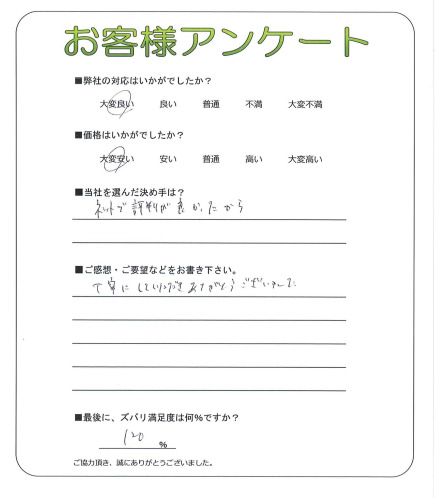 お客様アンケート
■弊社の対応はいかがでしたか？
大変良い 良い 普通 不満 大変不満
■価格はいかがでしたか？
大変安い 安い 普通 高い 大変高い
■当社を選んだ決め手は？
ネットで評判が良かったから
■ご感想・ご要望などをお書き下さい。
丁寧にしていただきありがとうございました
■最後に、ズバリ満足度は何%ですか？
120 %
ご協力頂き、誠にありがとうございました。